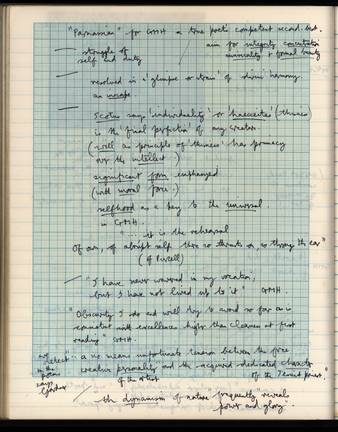 "Parnassian" - for GMH a true poet's competent record. but
aim for integrity concentration
musicality & formal beauty
struggle of
self and duty
resolved in a 'glimpse or strain' of 'divine' harmony.
an inscape.
Scotus says 'individuality' or 'haecceitas' (thisness)
is the 'final perfection' of any creature
(will as principle of 'thisness' has primacy
over the intellect.)
significant form enshrined
(with moral force.)
selfhood as a key to the universal
in GMH.
... it is the rehearsal
Of own, of abrupt self there so thrusts on, so throngs the ear"
(of Purcell)
"I have never wavered in my vocation,
but I have not lived up to it" GMH.
"Obscurity I do and will try to avoid so far as is
consistent with excellence higher than clearness at first
reading" GMH.
a no means unfortunate tension between the free
creative personality and the acquired dedicated character
of the artist
of the Jesuit priest.
in the
poem
says
Gardner
the dynamism of nature frequently "reveals
power and glory"